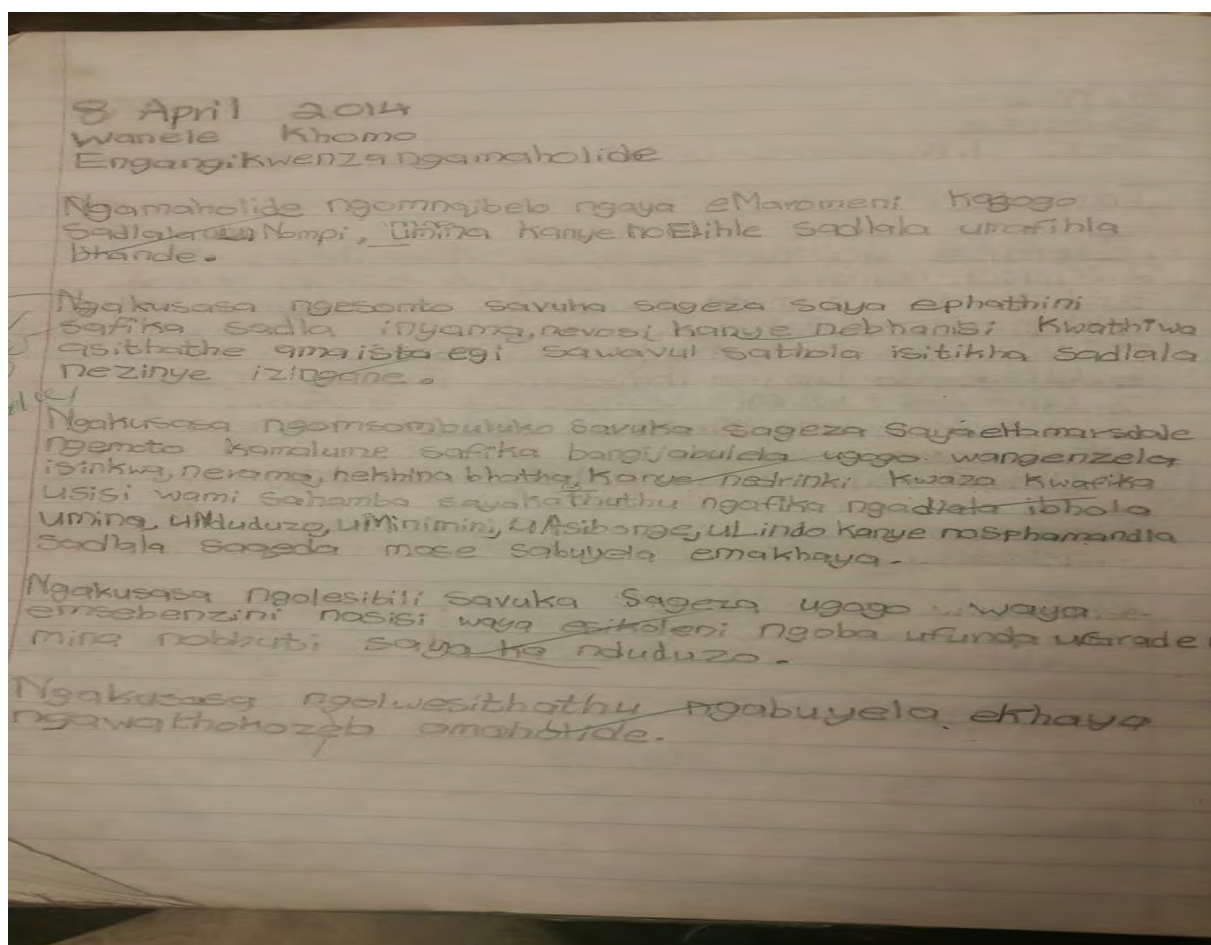 8 April 2014
Wanele Khomo
Engangikwenza ngamaholide
Ngamaholide ngomgqibelo ngaya eMaromeni kagogo
Nompi, umina kanye noElihle sadlala umafihla
bhande.
Ngakusasa ngesonto savuka sageza saya ephathini
safika sadla inyama, nevosi kanye nebhanisi kwathiwa
asithathe ama ista egi sawavul sathola isitikha sadlala
nezinye izingane.
Ngakusasa ngomsombuluko savuka sageza saya eHamarsdale
ngemoto kamalume safika bangijabulela ugogo wangenzela
isinkwa, nerama, nekhina bhotha, kanye nedrinki kwaza kwafika
usisi wami sahamba sayakathuthu ngafika ngadlala ibhola
umina, uNduduzo, uMinimini, uAsibonge, uLindo kanye noSphamandla
sadlala saqeda mase sabuyela emakhaya.
Ngakusasa ngolesibili savuka sageza ugogo waya
emsebenzini nasisi waya esikoleni ngoba ufunda uGrade
mina nobhuti saya ka nduduzo.
Ngakusasa ngolwesithathu ngabuyela ekhaya
ngawathokozela amaholide.